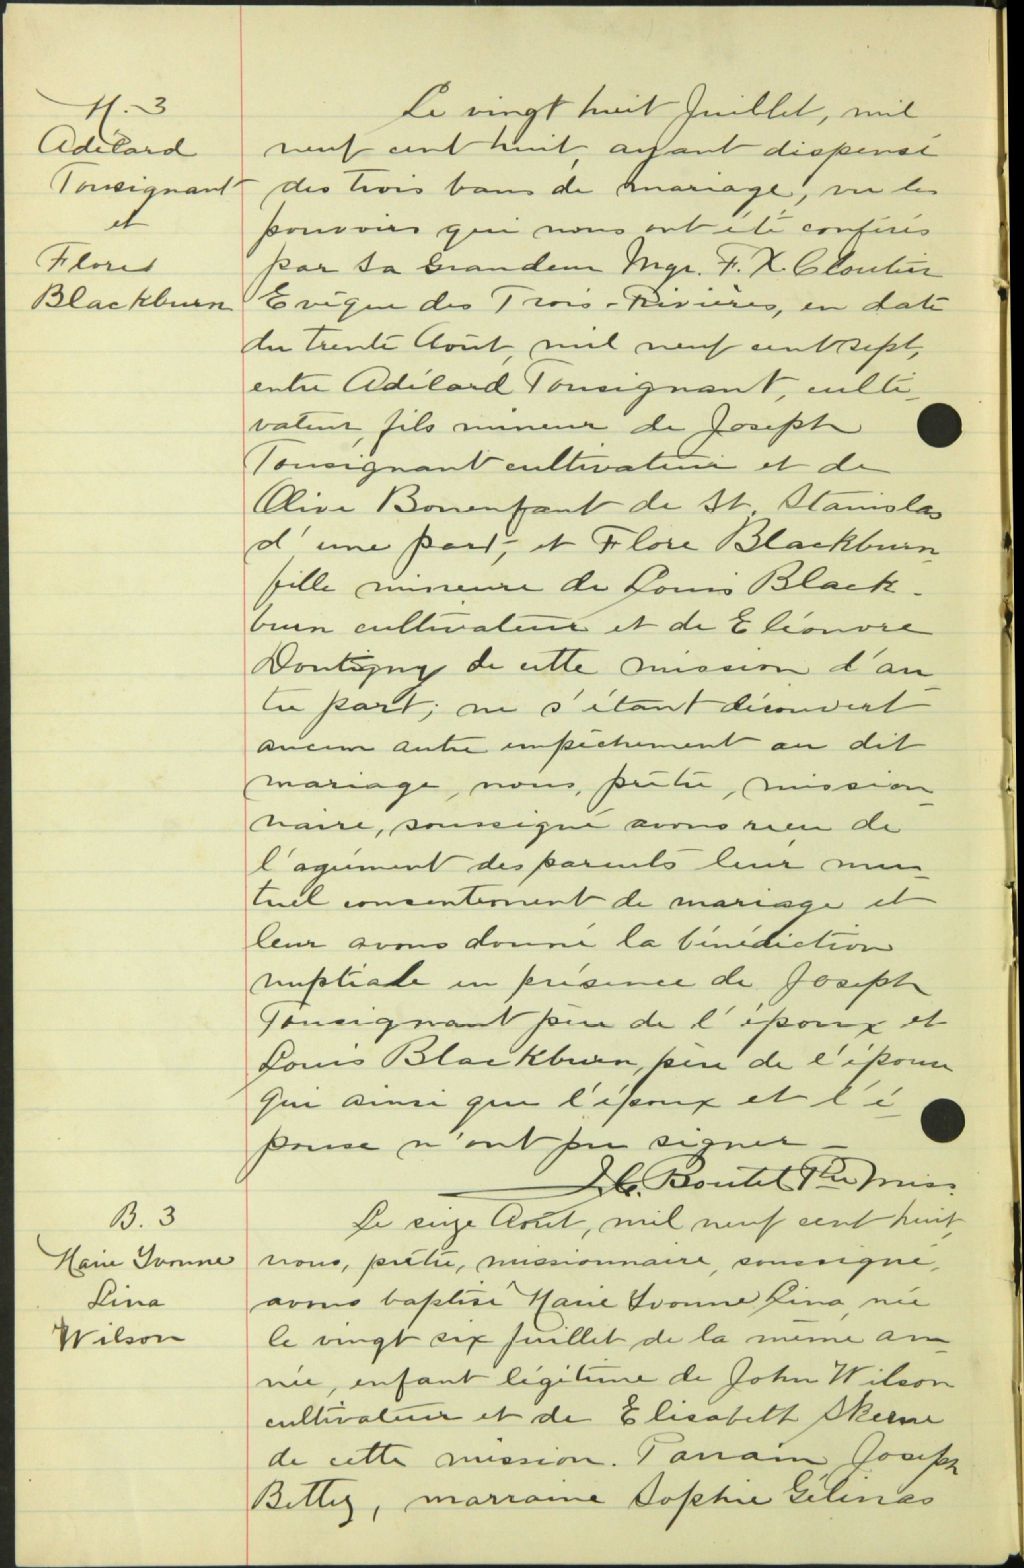 M.-3
Adélard
Tousignant
et
Flore
Blackburn
Le vingt huit Juillet, mil
neuf cent huit, ayant dispensé
des trois bans de mariage, vu les
pouvoirs qui nous ont été conférés
par Sa Grandeur Mgr. F. X. Cloutier
Evêque des Trois-Rivières, en date
du trente Août, mil neuf cent sept,
entre Adélard Tousignant, culti-
vateur, fils mineur de Joseph
Tousignant cultivateur et de
Olive Bonenfant de St. Stanislas
d'une part; et Flore Blackburn
fille mineure de Louis Black-
burn cultivateur et de Eléonore
Dontigny de cette mission d'au-
tre part; ne s'étant découvert
aucun autre empêchement au dit
mariage, nous, prêtre, mission-
naire, soussigné avons reçu de
l'agrément des parents leur mu-
tuel consentement de mariage et
leur avons donné la bénédiction
nuptiale en présence de Joseph
Tousignant père de l'époux et
Louis Blackburn, père de l'épouse
qui ainsi que l'époux et l'é-
pouse n'ont pu signer -
Boutet Ptre Miss.
B. 3
Marie Yvonne
Lina
Wilson
Le seize Août, mil neuf cent huit,
nous, prêtre, missionnaire, soussigné,
avons baptisé Marie Yvonne Lina, née
le vingt six juillet de la même an-
née, enfant légitime de John Wilson
cultivateur et de Elisabeth Skeene
de cette mission. Parrain Joseph
Bettez, marraine Sophie Gélinas